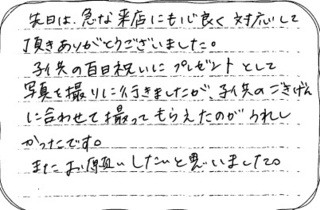 先日は、急な来店にも心良く対応して
頂きありがとうございました。
子供の百日祝いにプレゼントとして
写真を撮りに行きましたが、子供のごきげん
に合わせて撮ってもらえたのがうれし
かったです。
またお願いしたいと思いました。